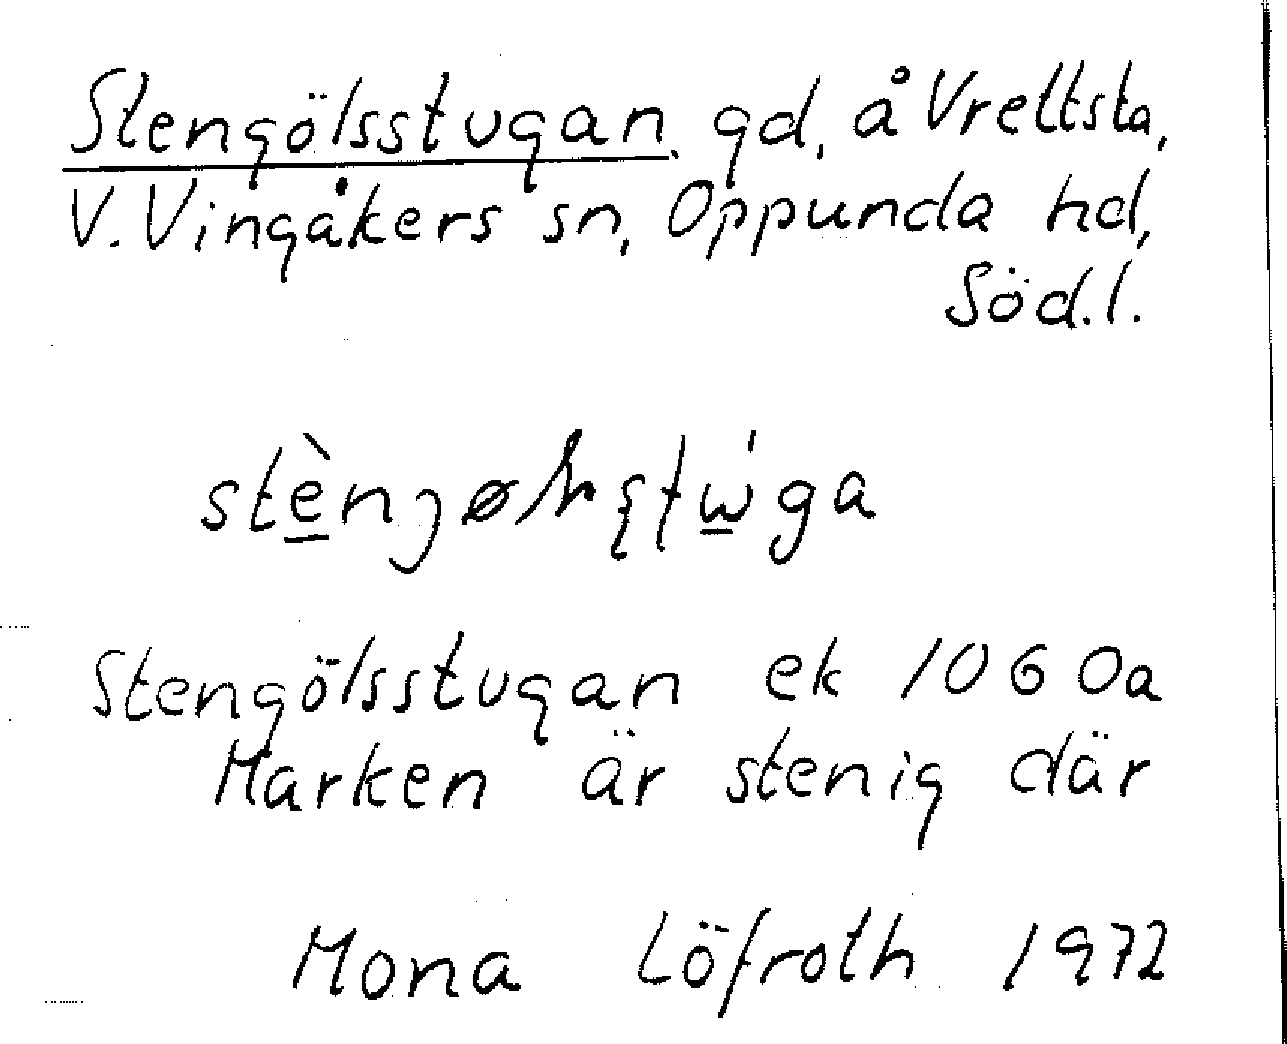 Stengölsstugan, gd, å Vrettsta,
V. Vingåkers sn, Oppunda hd,
Söd.l.
Stengölsstugan ek 10 G 0a
Marken är stenig där
Mona Löfroth 1972